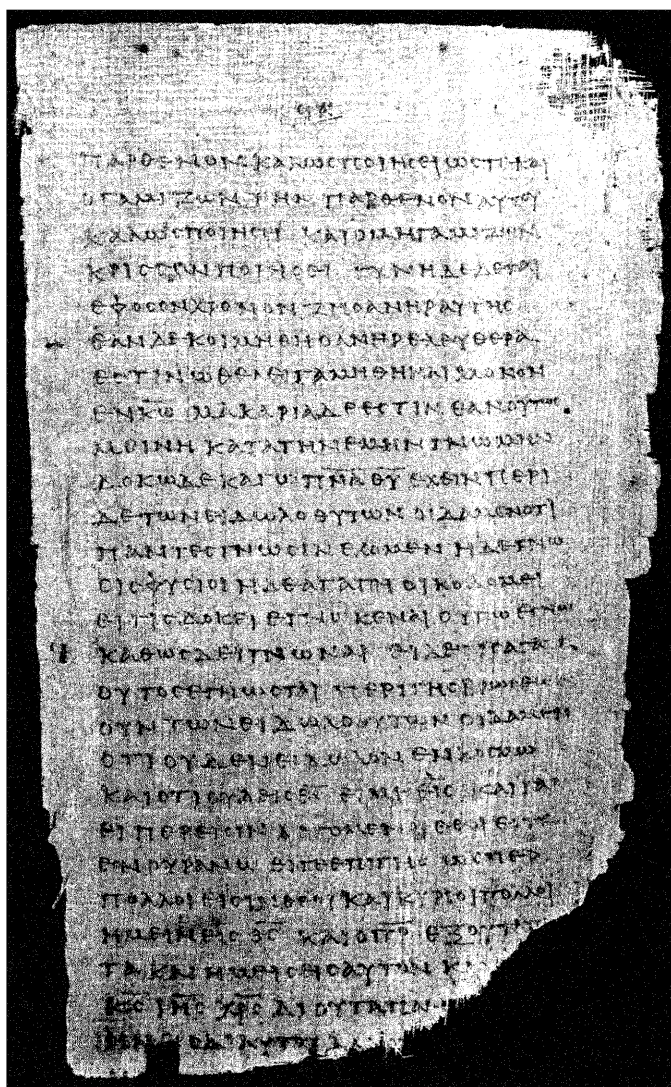 ΠΑΡΘΕΝΟΝ ΚΑΛΩϹ ΠΟΙΗϹΕΙ ΩϹΤΕ ΚΑΙ
Ο ΓΑΜΙΖΩΝ ΤΗΝ ΠΑΡΘΕΝΟΝ ΑΥΤΟΥ
ΚΑΛΩϹ ΠΟΙΗϹΕΙ ΚΑΙ Ο ΜΗ ΓΑΜΙΖΩΝ
ΚΡΙϹϹΟΝ ΠΟΙΗϹΕΙ ΓΥΝΗ ΔΕΔΕΤΑΙ
ΕΦ ΟϹΟΝ ΧΡΟΝΟΝ ΖΗ Ο ΑΝΗΡ ΑΥΤΗϹ
ΕΑΝ ΔΕ ΚΟΙΜΗΘΗ Ο ΑΝΗΡ ΕΛΕΥΘΕΡΑ
ΕϹΤΙΝ Ω ΘΕΛΕΙ ΓΑΜΗΘΗΝΑΙ ΜΟΝΟΝ
ΕΝ Κ̅Ω̅ ΜΑΚΑΡΙΑ ΔΕ ΕϹΤΙΝ ΕΑΝ ΟΥΤΩϹ
ΜΕΙΝΗ ΚΑΤΑ ΤΗΝ ΕΜΗΝ ΓΝΩΜΗΝ
ΔΟΚΩ ΔΕ ΚΑΓΩ Π̅Ν̅Α̅ Θ̅Υ̅ ΕΧΕΙΝ ΠΕΡΙ
ΔΕ ΤΩΝ ΕΙΔΩΛΟΘΥΤΩΝ ΟΙΔΑΜΕΝ ΟΤΙ
ΠΑΝΤΕϹ ΓΝΩϹΙΝ ΕΧΟΜΕΝ Η ΔΕ ΓΝΩ
ϹΙϹ ΦΥϹΙΟΙ Η ΔΕ ΑΓΑΠΗ ΟΙΚΟΔΟΜΕΙ
ΕΙ ΤΙϹ ΔΟΚΕΙ ΕΓΝΩΚΕΝΑΙ ΟΥΠΩ ΕΓΝΩ
ΚΑΘΩϹ ΔΕΙ ΓΝΩΝΑΙ ΕΙ ΔΕ ΤΙϹ ΑΓΑΠΑ
ΟΥΤΟϹ ΕΓΝΩϹΤΑΙ ΠΕΡΙ ΤΗϹ ΒΡΩϹΕΩϹ
ΟΥΝ ΤΩΝ ΕΙΔΩΛΟΘΥΤΩΝ ΟΙΔΑΜΕΝ
ΟΤΙ ΟΥΔΕΝ ΕΙΔΩΛΟΝ ΕΝ ΚΟϹΜΩ
ΚΑΙ ΟΤΙ ΟΥΔΕΙϹ Θ̅Ϲ̅ ΕΙ ΜΗ ΕΙϹ ΚΑΙ ΓΑΡ
ΕΙΠΕΡ ΕΙϹΙΝ ΛΕΓΟΜΕΝΟΙ ΘΕΟΙ ΕΙΤΕ
ΕΝ ΟΥΡΑΝΩ ΕΙΤΕ ΕΠΙ ΓΗϹ ΩϹΠΕΡ
ΠΟΛΛΟΙ ΕΙϹΙΝ ΘΕΟΙ ΚΑΙ ΚΥΡΙΟΙ ΠΟΛΛΟΙ
ΗΜΕΙΝ ΕΙϹ Θ̅Ϲ̅ Ο Π̅Η̅Ρ̅ ΕΞ ΟΥ ΤΑ
ΤΑ ΚΑΙ ΗΜΕΙϹ ΕΙϹ ΑΥΤΟΝ Κ
Κ̅Ϲ̅ Ι̅Η̅Ϲ̅ Χ̅Ρ̅Ϲ̅ ΔΙ ΟΥ ΤΑ ΠΑΝ
ΔΙ ΑΥΤΟΥ